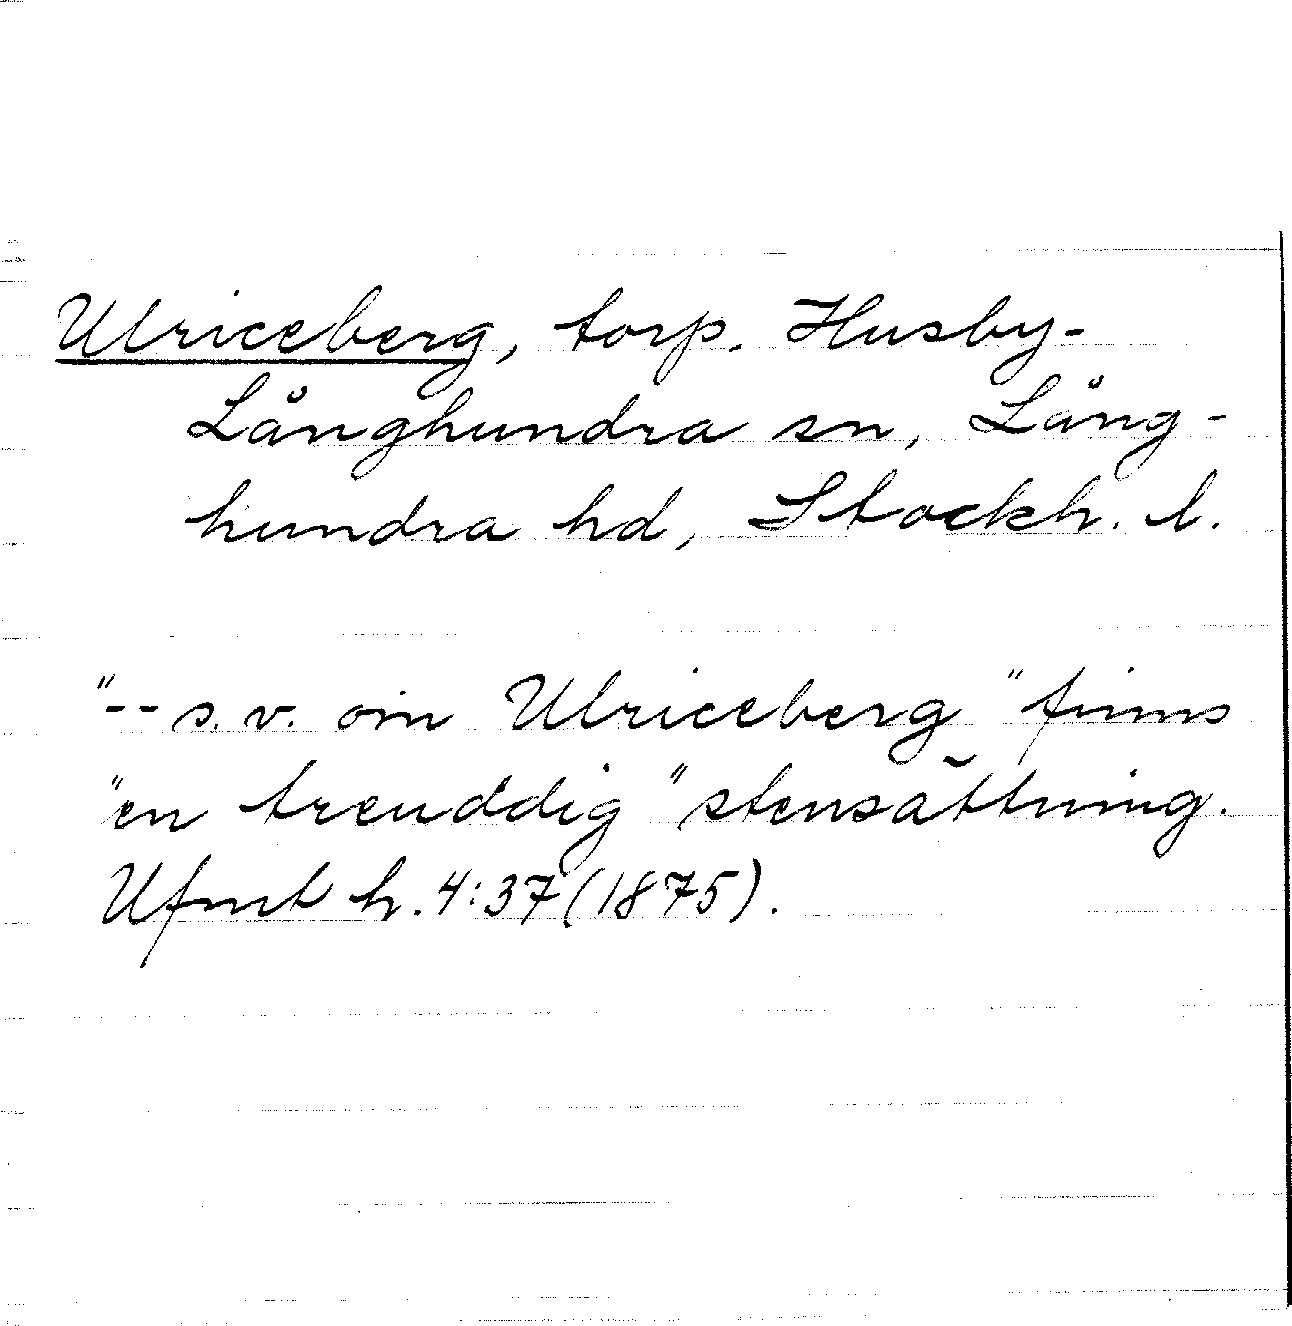 Ulriceberg, torp. Husby-
Långhundra sn, Lång-
hundra hd, Stockh. l.
"-- s. v. om Ulriceberg" finns
"en treuddig" stensättning.
Ufmt h. 4:37 (1875).